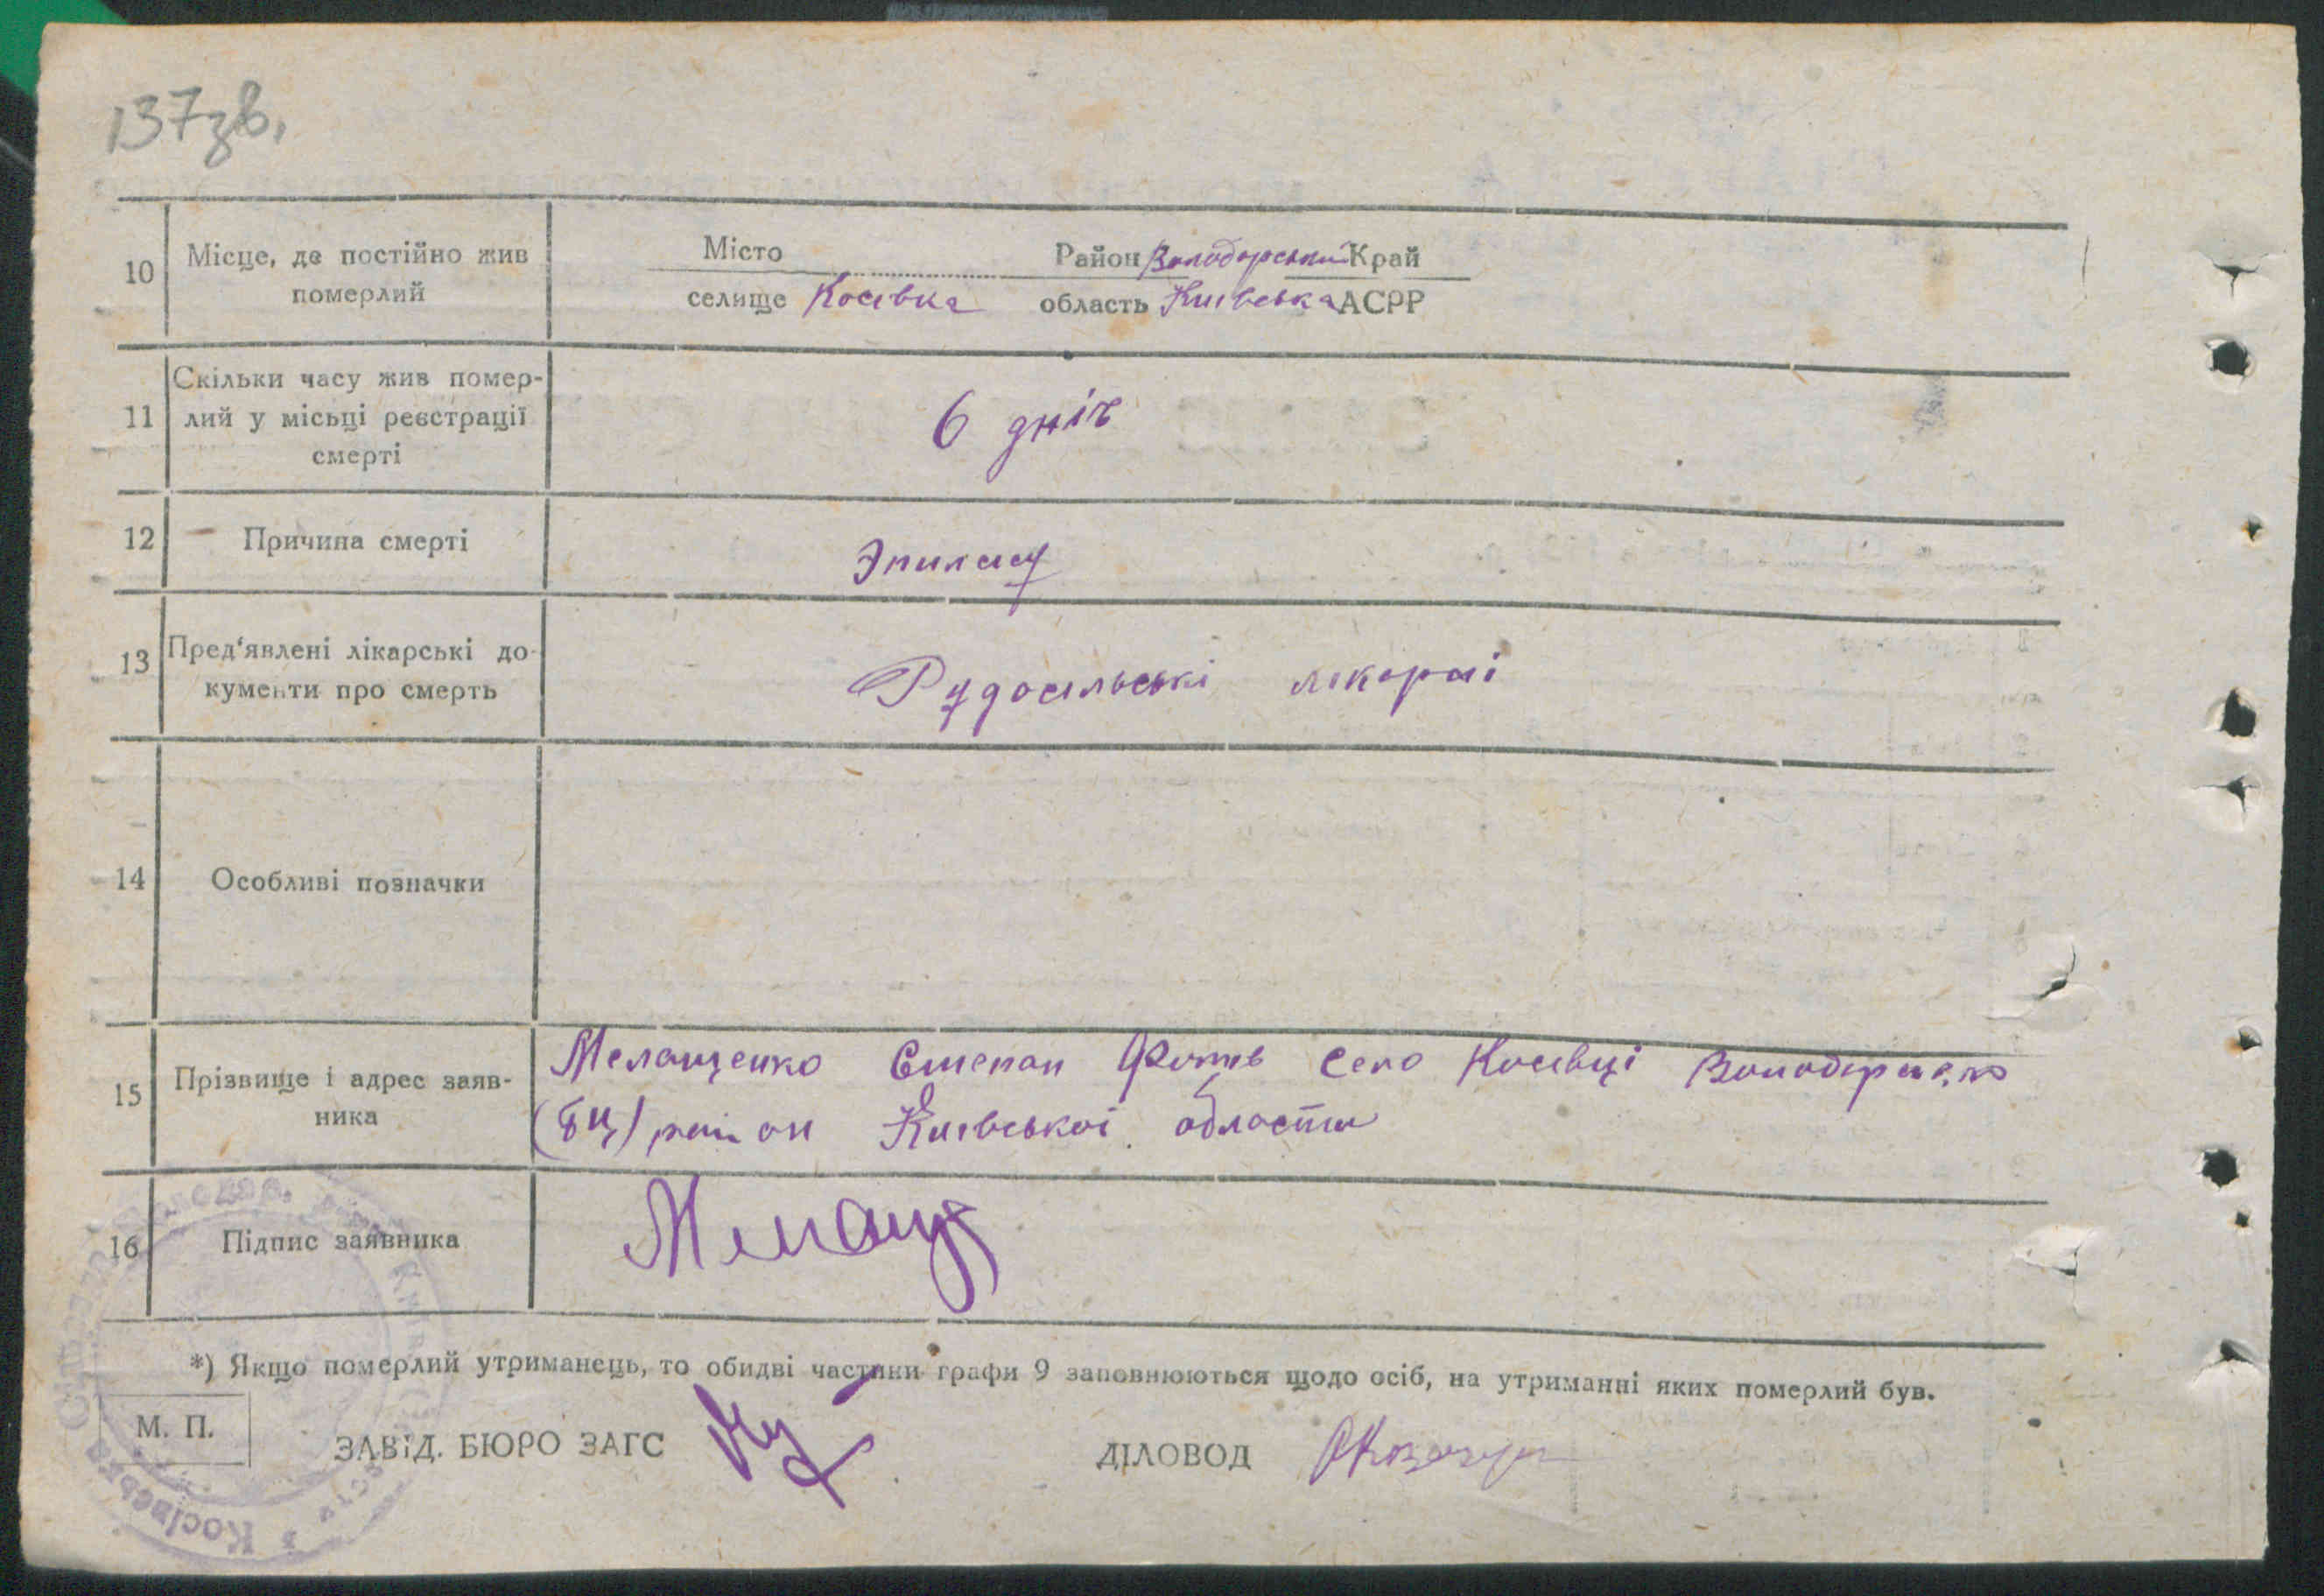 137зв.
10 Місце, де постійно жив померлий
Місто Район Володарський Край
селище Косівка область Київська АСРР
11 Скільки часу жив помер-
лий у місьці реєстрації
смерті
6 днів
12 Причина смерті
13 Пред'явлені лікарські до-
кументи про смерть
Рудосільські
14 Особливі позначки
15 Прізвище і адрес заяв-
ника
Мелащенко Степан село Косівці
(БЦ) район Київської области
16 Підпис заявника
Мелащ
*) Якщо померлий утриманець, то обидві частини графи 9 заповнюються щодо осіб, на утриманні яких померлий був.
М. П.
ЗАВІД. БЮРО ЗАГС ДІЛОВОД
Косівська